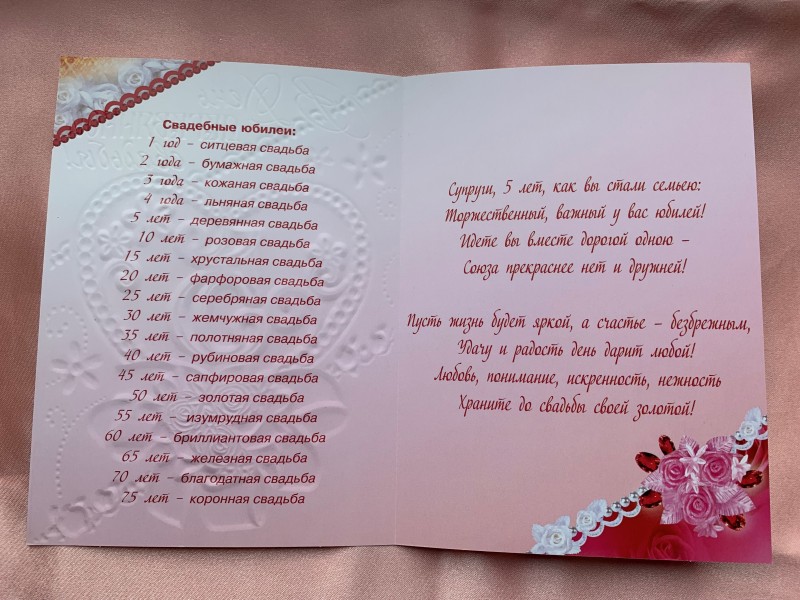 Свадебные юбилеи:
1 год – ситцевая свадьба
2 года – бумажная свадьба
3 года – кожаная свадьба
4 года – льняная свадьба
5 лет – деревянная свадьба
10 лет – розовая свадьба
15 лет – хрустальная свадьба
20 лет – фарфоровая свадьба
25 лет – серебряная свадьба
30 лет – жемчужная свадьба
35 лет – полотняная свадьба
40 лет – рубиновая свадьба
45 лет – сапфировая свадьба
50 лет – золотая свадьба
55 лет – изумрудная свадьба
60 лет – бриллиантовая свадьба
65 лет – железная свадьба
70 лет – благодатная свадьба
75 лет – коронная свадьба
Супруги, 5 лет, как вы стали семьею:
Торжественный, важный у вас юбилей!
Идете вы вместе дорогой одною –
Союза прекраснее нет и дружней!
Пусть жизнь будет яркой, а счастье – безбрежным,
Удачу и радость день дарит любой!
Любовь, понимание, искренность, нежность
Храните до свадьбы своей золотой!